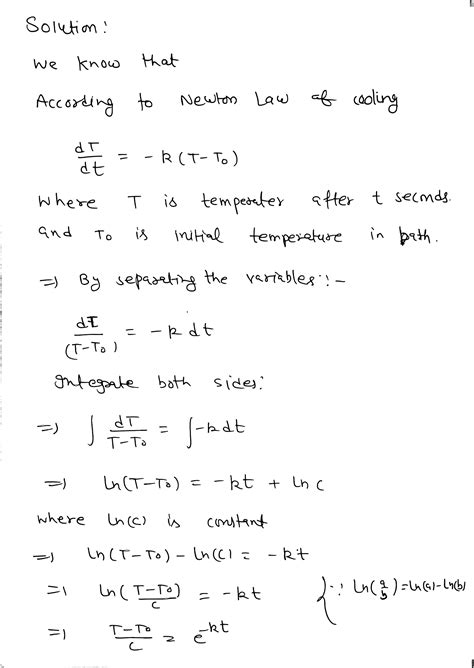 Solution:
We know that
According to Newton Law of cooling
dT/dt = -k (T-T₀)
where T is temperater after t seconds.
and T₀ is initial temperature in bath.
=) By separating the variables:-
dT/(T-T₀) = -k dt
Integrate both sides:
=) ∫ dT/(T-T₀) = ∫-k dt
=) ln(T-T₀) = -kt + ln c
where ln(c) is constant
=) ln(T-T₀) - ln(c) = -kt
=) ln((T-T₀)/c) = -kt {∵ ln(a/b) = ln(a)-ln(b)
=) (T-T₀)/c = e^-kt